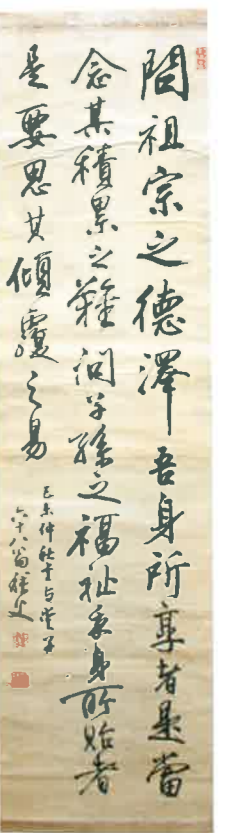 問祖宗之德澤吾身所享者是當
念其積累之難問子孫之福祉吾身所貽者
是要思其傾覆之易
己未仲秋
六十八翁